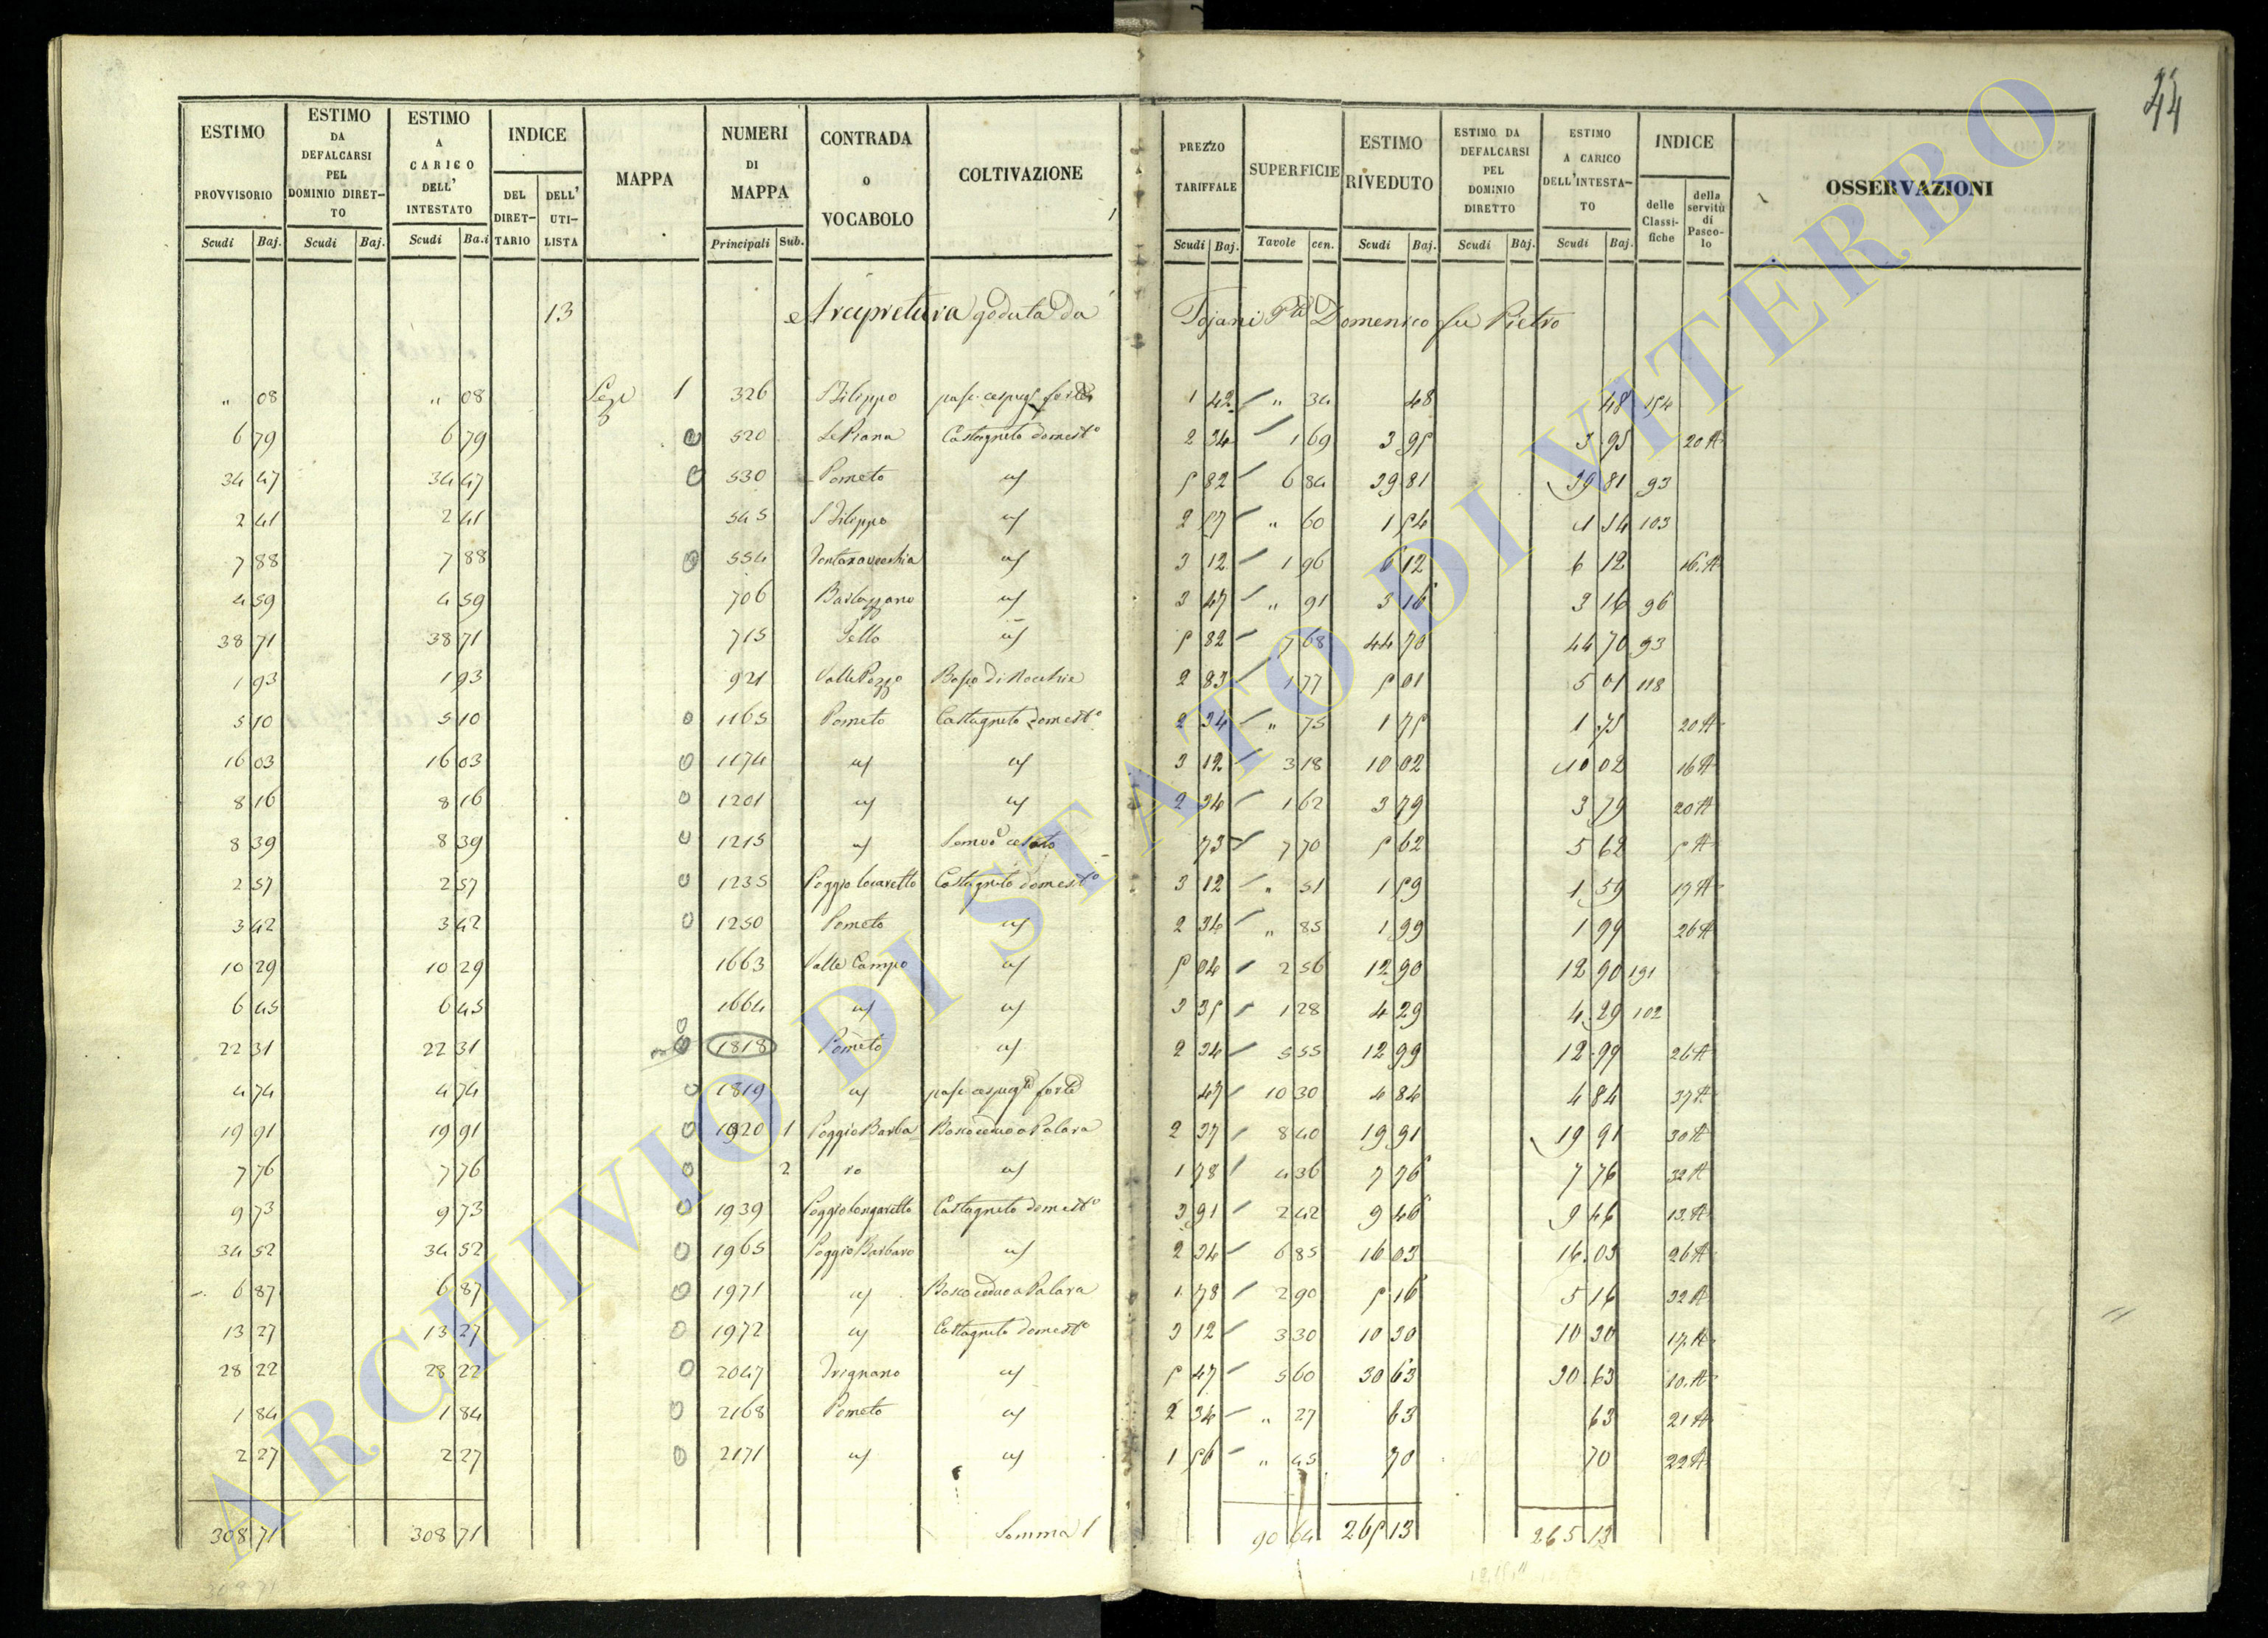 44
ESTIMO PROVVISORIO | ESTIMO DA DEFALCARSI PEL DOMINIO DIRET-TO | ESTIMO A CARICO DELL' INTESTATO | INDICE | MAPPA | NUMERI DI MAPPA | CONTRADA o VOCABOLO | COLTIVAZIONE | PREZZO TARIFFALE | SUPERFICIE | ESTIMO RIVEDUTO | ESTIMO DA DEFALCARSI PEL DOMINIO DIRETTO | ESTIMO A CARICO DELL'INTESTA-TO | INDICE | OSSERVAZIONI
DEL DIRET-TARIO | DELL' UTI-LISTA | delle Classi-fiche | della servitù di Pasco-lo
Scudi | Baj. | Scudi | Baj. | Scudi | Ba.i | Principali | Sub. | Scudi | Baj. | Tavole | cen. | Scudi | Baj. | Scudi | Baj. | Scudi | Baj.
13 Arcipretura goduta da Tojani Domenico fu Pietro
" 08 " 08 1 326 S Filippo pasc. cespug. forte 1 42 " 34 48 48 154
6 79 6 79 520 Le Piana Castagneto domest° 2 34 1 69 3 95 3 95 20 A
34 47 34 47 530 Pometo 5 82 6 84 39 81 39 81 93
2 41 2 41 545 S Filippo 2 57 " 60 1 54 1 54 103
7 88 7 88 554 Fontanavecchia 3 12 1 96 6 12 6 12 16. A
4 59 4 59 706 3 47 " 91 3 16 3 16 96
38 71 38 71 715 5 82 7 68 44 70 44 70 93
1 93 1 93 921 Valle Pozzo 2 83 1 77 5 01 5 01 118
5 10 5 10 1165 Pometo Castagneto domest° 2 34 " 75 1 75 1 75 20 A
16 03 16 03 1174 3 12 3 18 10 02 10 02 16 A
8 16 8 16 1201 2 34 1 62 3 79 3 79 20 A
8 39 8 39 1215 73 7 70 5 62 5 62 5 A
2 57 2 57 1235 Castagneto domest° 3 12 " 51 1 59 1 59 17 A
3 42 3 42 1250 Pometo 2 34 " 85 1 99 1 99 26 A
10 29 10 29 1663 Valle Campo 5 04 2 56 12 90 12 90 191
6 45 6 45 1664 3 35 1 28 4 29 4 29 102
22 31 22 31 1818 Pometo 2 34 5 55 12 99 12 99 26 A
4 74 4 74 1819 pasc. cespugl. forte 47 10 30 4 84 4 84 37 A
19 91 19 91 1920 1 Poggio Barba Bosco ceduo a Palara 2 37 8 40 19 91 19 91 30 A
7 76 7 76 2 ro 1 78 4 36 7 76 7 76 32 A
9 73 9 73 1939 Castagneto domest° 3 91 2 42 9 46 9 46 13. A
34 52 34 52 1965 Poggio Barbaro 2 34 6 85 16 03 16 03 26 A
6 87 6 87 1971 Bosco ceduo a Palara 1 78 2 90 5 16 5 16 32 A
13 27 13 27 1972 Castagneto domest° 3 12 3 30 10 30 10 30 17. A
28 22 28 22 2047 Trignano 5 47 5 60 30 63 30 63 10. A
1 84 1 84 2168 Pometo 2 34 " 27 63 63 21 A
2 27 2 27 2171 1 56 " 45 70 70 22 A
308 71 308 71 Somma 90 64 265 13 265 13
ARCHIVIO DI STATO DI VITERBO